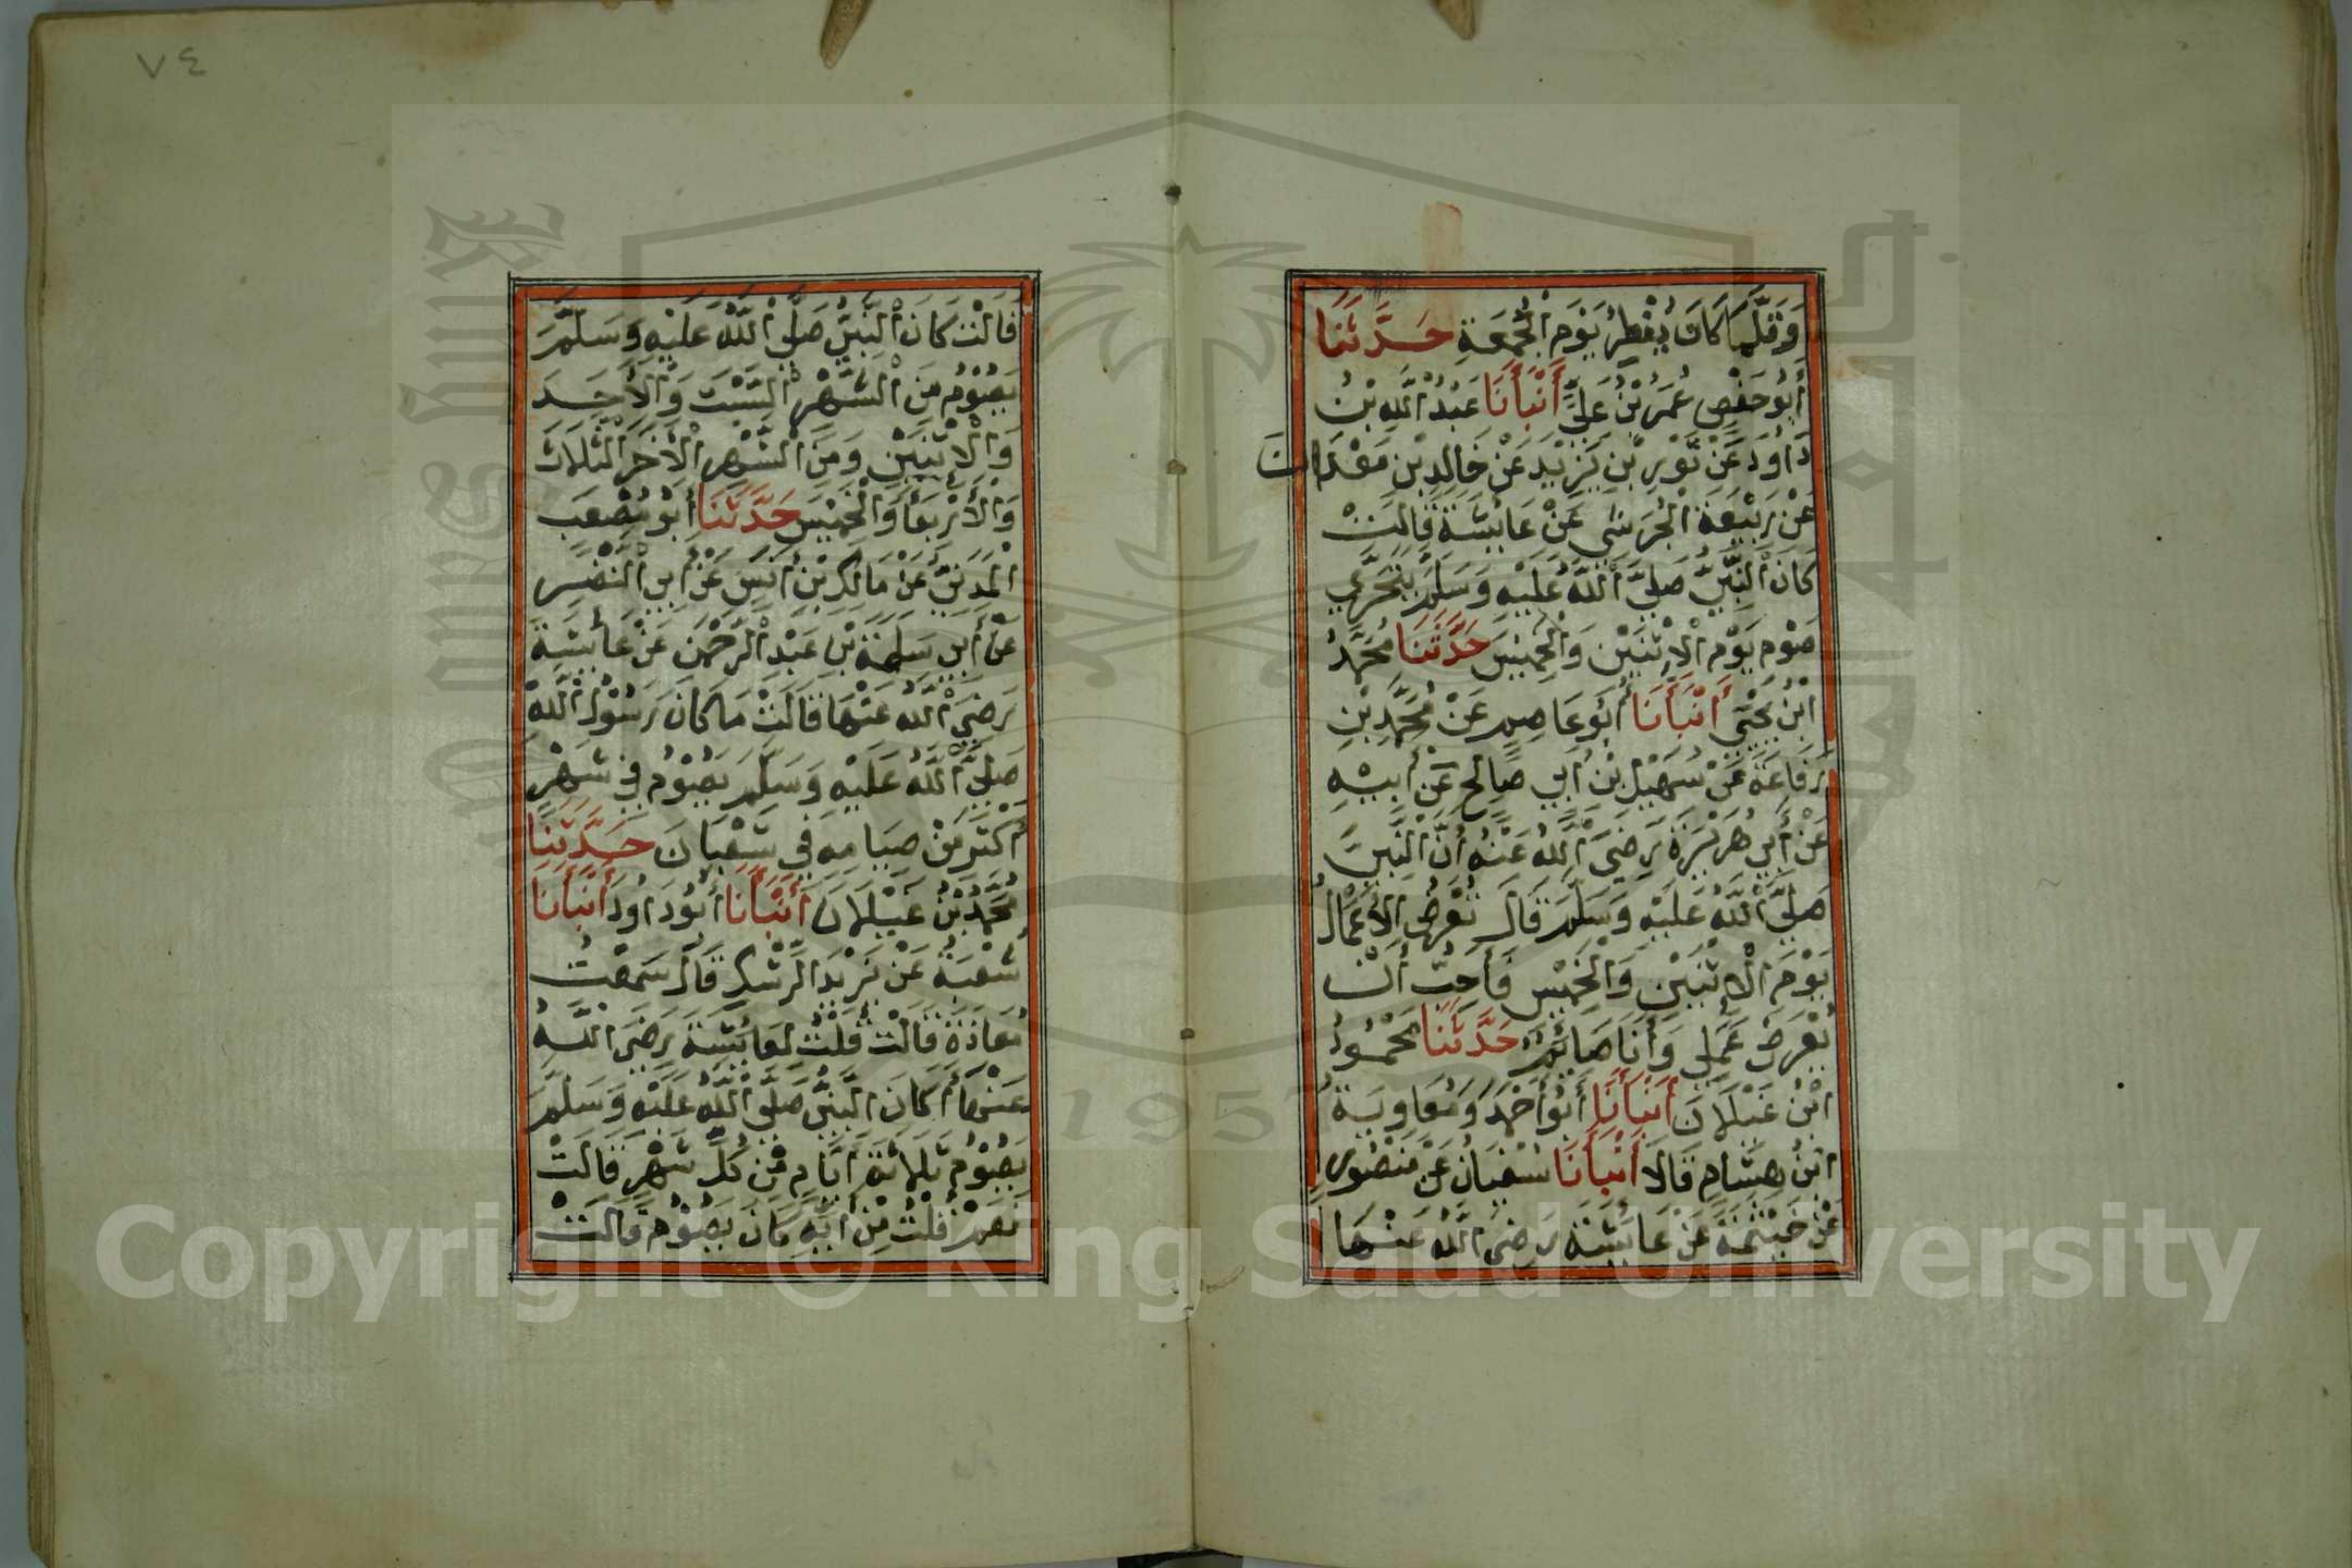 وَقَلَّمَا كَانَ يُفْطِرُ يَوْمَ الْجُمُعَةِ حَدَّثَنَا
أَبُو حَفْصٍ عُمَرُ بْنُ عَلِيٍّ أَنْبَأَنَا عَبْدُ اللَّهِ بْنُ
دَاوُدَ عَنْ ثَوْرِ بْنِ يَزِيْدَ عَنْ خَالِدِ بْنِ مَعْدَانَ
عَنْ رَبِيْعَةَ الْجُرَشِي عَنْ عَائِشَةَ قَالَتْ
كَانَ النَّبِيُّ صَلَّى اللَّهُ عَلَيْهِ وَسَلَّمَ يَتَحَرَّي
صَوْمَ يَوْمِ الْاِثْنَيْنِ وَالْخَمِيْسِ حَدَّثَنَا مُحَمَّدُ
ابْنُ يَحْيَى أَنْبَأَنَا أَبُو عَاصِمٍ عَنْ مُحَمَّدِ بْنِ
رِفَاعَةَ عَنْ سُهَيْلِ بْنِ أَبِي صَالِحٍ عَنْ أَبِيْهِ
عَنْ أَبِي هُرَيْرَةَ رَضِيَ اللَّهُ عَنْهُ أَنَّ النَّبِيَّ
صَلَّى اللَّهُ عَلَيْهِ وَسَلَّمَ قَالَ تُعْرَضُ الْأَعْمَالُ
يَوْمَ الْاِثْنَيْنِ وَالْخَمِيْسِ فَأُحِبُّ أَنْ
يُعْرَضَ عَمَلِي وَأَنَا صَائِمٌ حَدَّثَنَا مَحْمُودُ
ابْنُ غَيْلَانَ أَنْبَأَنَا أَبُو أَحْمَدَ وَمُعَاوِيَةُ
ابْنُ هِشَامٍ قَالَا أَنْبَأَنَا سُفْيَانُ عَنْ مَنْصُورٍ
عَنْ خَيْثَمَةَ عَنْ عَائِشَةَ رَضِيَ اللَّهُ عَنْهَا
٧٤
قَالَتْ كَانَ النَّبِيُّ صَلَّى اللَّهُ عَلَيْهِ وَسَلَّمَ
يَصُوْمُ مِنَ الشَّهْرِ السَّبْتَ وَالْأَحَدَ
وَالْاِثْنَيْنِ وَمِنَ الشَّهْرِ الْأٰخَرِ الثَّلَاثَ
وَالْأَرْبِعَاَ وَالْخَمِيْسَ حَدَّثَنَا أَبُو مُصْعَبٍ
الْمَدَنِيُّ عَنْ مَالِكِ بْنِ أَنَسٍ عَنْ أَبِي النَّضْرِ
عَنْ أَبِي سَلَمَةَ بْنِ عَبْدِ الرَّحْمٰنِ عَنْ عَائِشَةَ
رَضِيَ اللَّهُ عَنْهَا قَالَتْ مَا كَانَ رَسُوْلُ اللَّهِ
صَلَّى اللَّهُ عَلَيْهِ وَسَلَّمَ يَصُوْمُ فِي شَهْرٍ
أَكْثَرَ مِنْ صِيَامِهِ فِي شَعْبَانَ حَدَّثَنَا
مُحَمَّدُ بْنُ غَيْلَانَ أَنْبَأَنَا أَبُو دَاوُدَ أَنْبَأَنَا
شُعْبَةُ عَنْ يَزِيْدَ الرِّشْكِ قَالَ سَمِعْتُ
مُعَاذَةَ قَالَتْ قُلْتُ لِعَائِشَةَ رَضِيَ اللَّهُ
عَنْهَا أَكَانَ النَّبِيُّ صَلَّى اللَّهُ عَلَيْهِ وَسَلَّمَ
يَصُوْمُ ثَلَاثَةَ أَيَّامٍ مِنْ كُلِّ شَهْرٍ قَالَتْ
نَعَمْ قُلْتُ مِنْ أَيِّهِ كَانَ يَصُوْمُ قَالَتْ
1957
Copyright © King Saud University